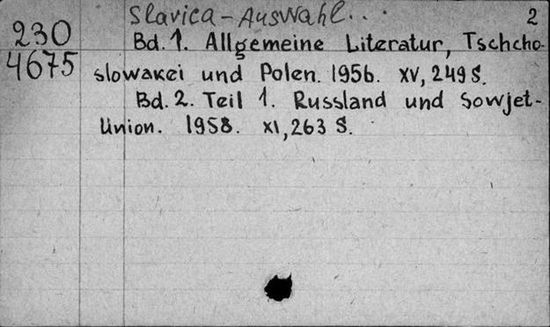 Slavica-Auswahl... 2
230
4675
Bd. 1. Allgemeine Literatur, Tschcho-
slowakei und Polen. 1956. XV, 249 S.
Bd. 2. Teil 1. Russland und Sowjet-
Union. 1958. XI, 263 S.